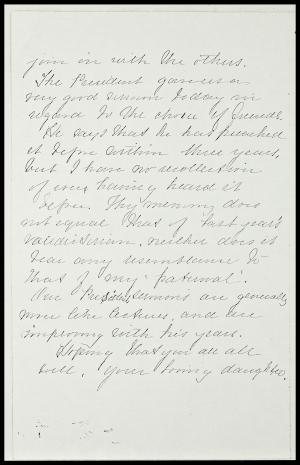 join in with the others.
The President gave us a
very good sermon today in
regard to the choice of friends.
He says that he has preached
it before within three years,
but I have no recollection
of ever having heard it
before. My memory does
not equal that of last year's
neither does it
bear any resemblance to
that of my "paternal".
Our President's sermons are generally
more like lectures, and are
improving with his years.
Hoping that you are all
well, Your loving daughter.